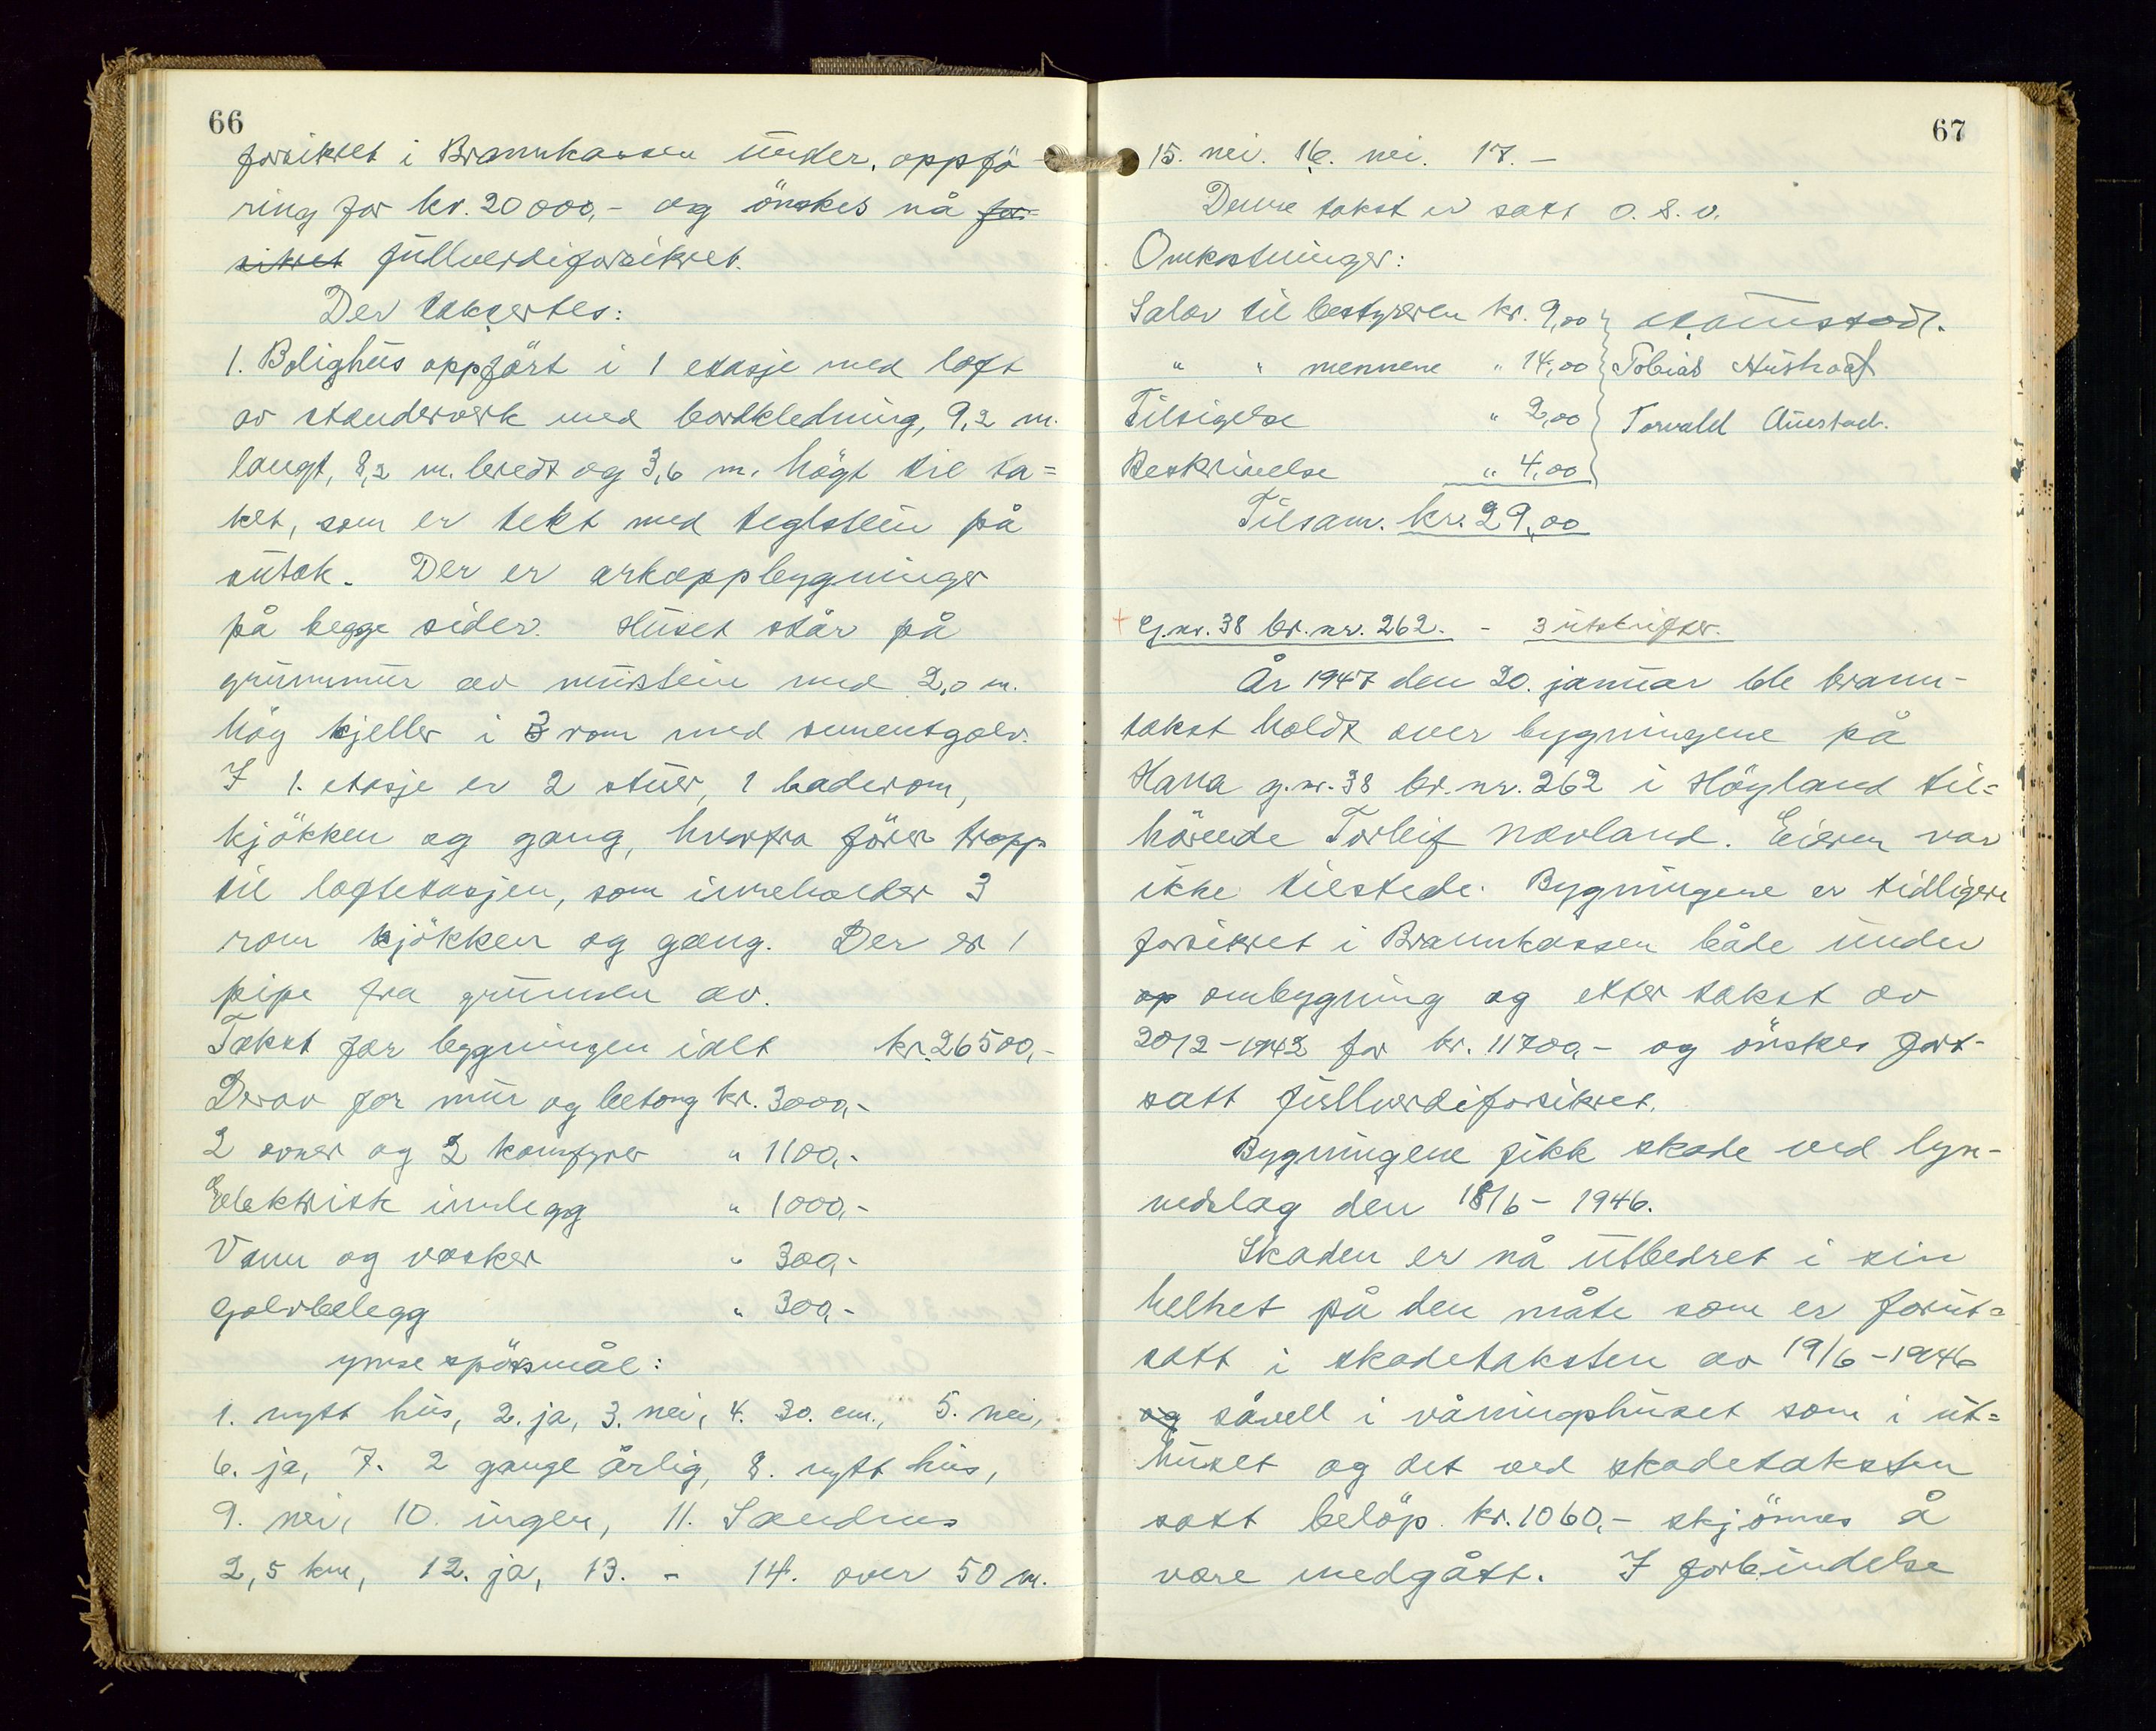 66
forsikret i Brannkassen under oppfö-
ring for kr. 20000,- og önskes nå for-
sikret fullverdiforsikret.
Der taksertes:
1. Bolighus oppfört i 1 etasje med loft
av standerverk med bordkledning, 9,2 m.
langt, 8,2 m. bredt og 3,6 m. högt til ta=
ket, som er tekt med teglstein på
sutak. Der er arkoppbygninger
på begge sider. Huset står på
grunnmur av murstein med 2,0 m.
höy kjeller i 3 rom med sementgolv.
I 1. etasje er 2 stuer, 1 baderom,
kjökken og gang, hvorfra förer trapp
til loftetasjen, som inneholder 3
rom kjökken og gang. Der er 1
pipe fra grunnen av.
Takst for bygningen ialt kr. 26500,-
Derav for mur og betong kr. 3000,-
2 ovner og 2 komfyrer " 1100,-
Elektrisk innlegg " 1000,-
Vann og vasker " 300,-
Golvbelegg " 300,-
ymse spörsmål:
1. nytt hus, 2. ja, 3. nei, 4. 30. cm., 5. nei,
6. ja, 7. 2 gange årlig, 8. nytt hus,
9. nei, 10. ingen, 11. Sandnes
2,5 km, 12. ja, 13. - 14. over 50 m.
67
15. nei. 16. nei. 17. -
Denne takst er satt o. s. v.
Omkostninger:
Salær til bestyreren kr. 9,00
" " mennene " 14,00 Tobias Hushoaf
Tilsigelse " 2,00 Torvald Austad.
Beskrivelse " 4,00
Tilsam. kr. 29,00
+ G.nr. 38 br.nr. 262. - 3 utskrifter.
År 1947 den 20. januar ble brann-
takst holdt over bygningene på
Hana g.nr. 38 br.nr. 262 i Höyland til=
hörende Torleif Nævland. Eieren var
ikke tilstede. Bygningene er tidligere
forsikret i Brannkassen både under
op ombygning og etter takst av
20/2-1942 for kr. 11700,- og önskes fort-
satt fullverdiforsikret.
Bygningene fikk skade ved lyn-
nedslag den 18/6-1946.
Skaden er nå utbedret i sin
helhet på den måte som er forut=
satt i skadetaksten av 19/6-1946
og såvell i våningshuset som i ut=
huset og det ved skadetaksten
satt belöp kr. 1060,- skjönnes å
være medgått. I forbindelse